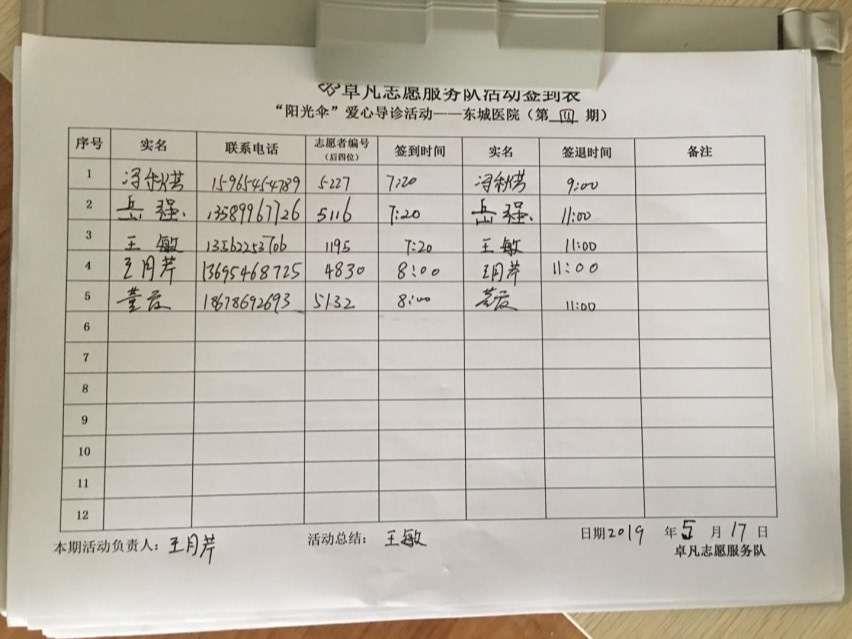 卓凡志愿服务队活动签到表
“阳光伞”爱心导诊活动——东城医院（第四期）
序号 实名 联系电话 志愿者编号（后四位） 签到时间 实名 签退时间 备注
1 15965454789 5227 7:20 9:00
2 岳强 13589967726 5116 7:20 岳强 11:00
3 王敏 13562253706 1195 7:20 王敏 11:00
4 王月芹 13695468725 4830 8:00 王月芹 11:00
5 18678692693 5132 8:00 11:00
6
7
8
9
10
11
12
本期活动负责人：王月芹 活动总结：王敏 日期2019年5月17日
卓凡志愿服务队